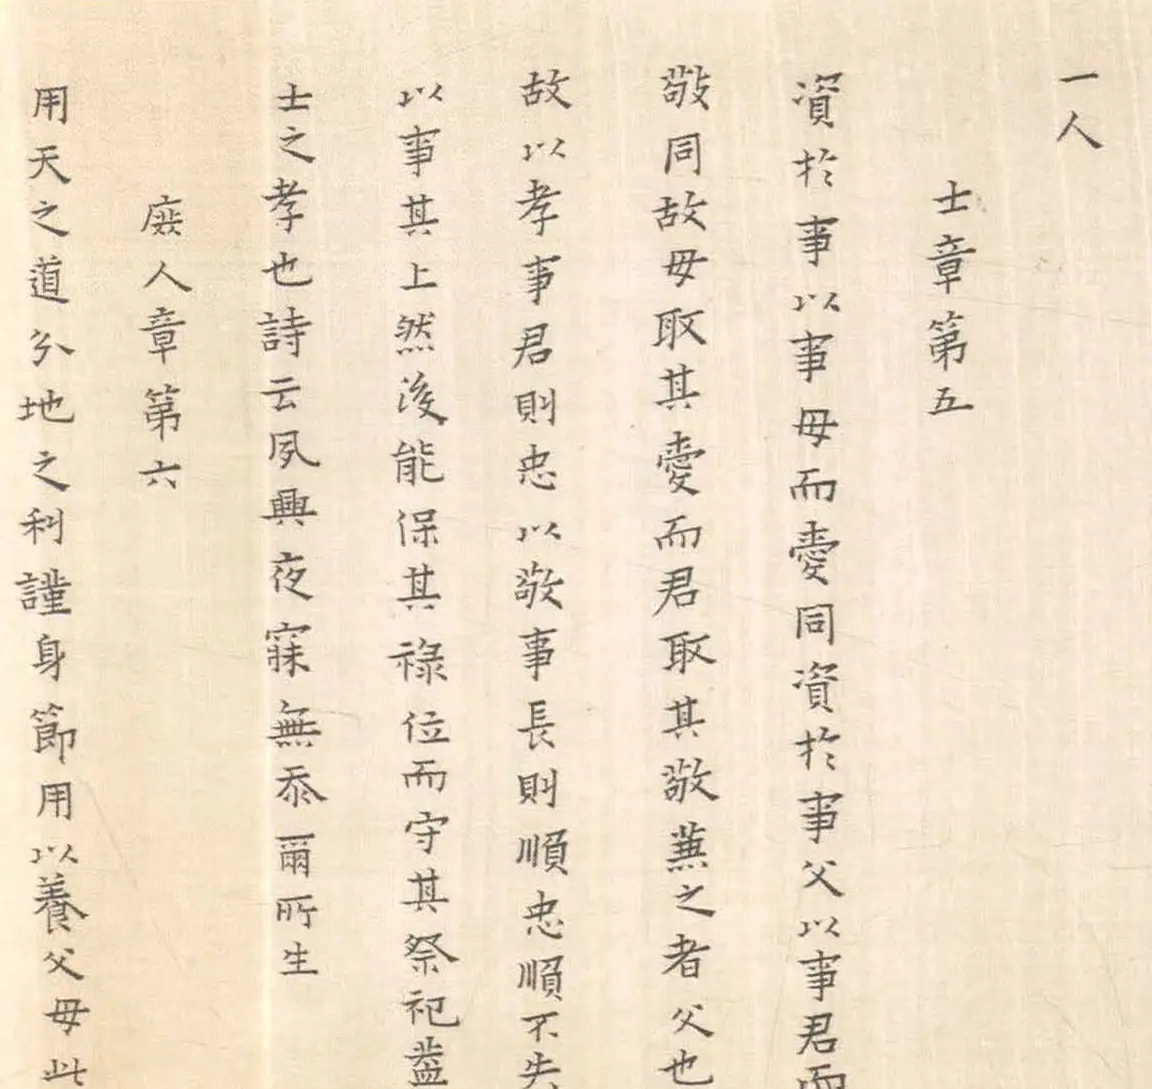 一人
士章第五
資於事以事母而愛同資於事父以事君而
敬同故母取其愛而君取其敬兼之者父也
故以孝事君則忠以敬事長則順忠順不失
以事其上然後能保其祿位而守其祭祀蓋
士之孝也詩云夙興夜寐無忝爾所生
庶人章第六
用天之道分地之利謹身節用以養父母此